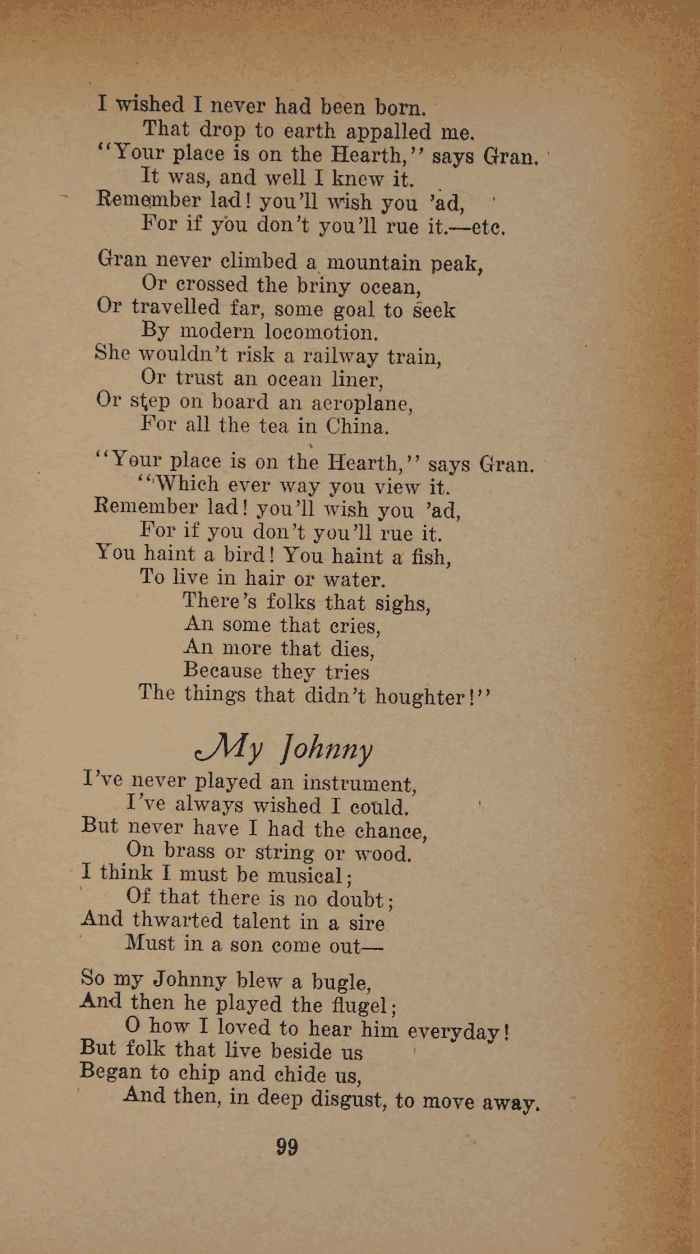 I wished I never had been born.
That drop to earth appalled me.
‘‘Your place is on the Hearth,’’ says Gran.
It was, and well I knew it.
Remember lad! you’ll wish you ’ad,
For if you don’t you’ll rue it.—etc.
Gran never climbed a mountain peak,
Or crossed the briny ocean,
Or travelled far, some goal to seek
By modern locomotion.
She wouldn’t risk a railway train,
Or trust an ocean liner,
Or step on board an aeroplane,
For all the tea in China.
‘‘Your place is on the Hearth,’’ says Gran.
‘‘Which ever way you view it.
Remember lad! you’ll wish you ’ad,
For if you don’t you’ll rue it.
You haint a bird! You haint a fish,
To live in hair or water.
There’s folks that sighs,
An some that cries,
An more that dies,
Because they tries
The things that didn’t houghter!’’
My Johnny
I’ve never played an instrument,
I’ve always wished I could.
But never have I had the chance,
On brass or string or wood.
I think I must be musical;
Of that there is no doubt;
And thwarted talent in a sire
Must in a son come out—
So my Johnny blew a bugle,
And then he played the flugel;
O how I loved to hear him everyday!
But folk that live beside us
Began to chip and chide us,
And then, in deep disgust, to move away.
99